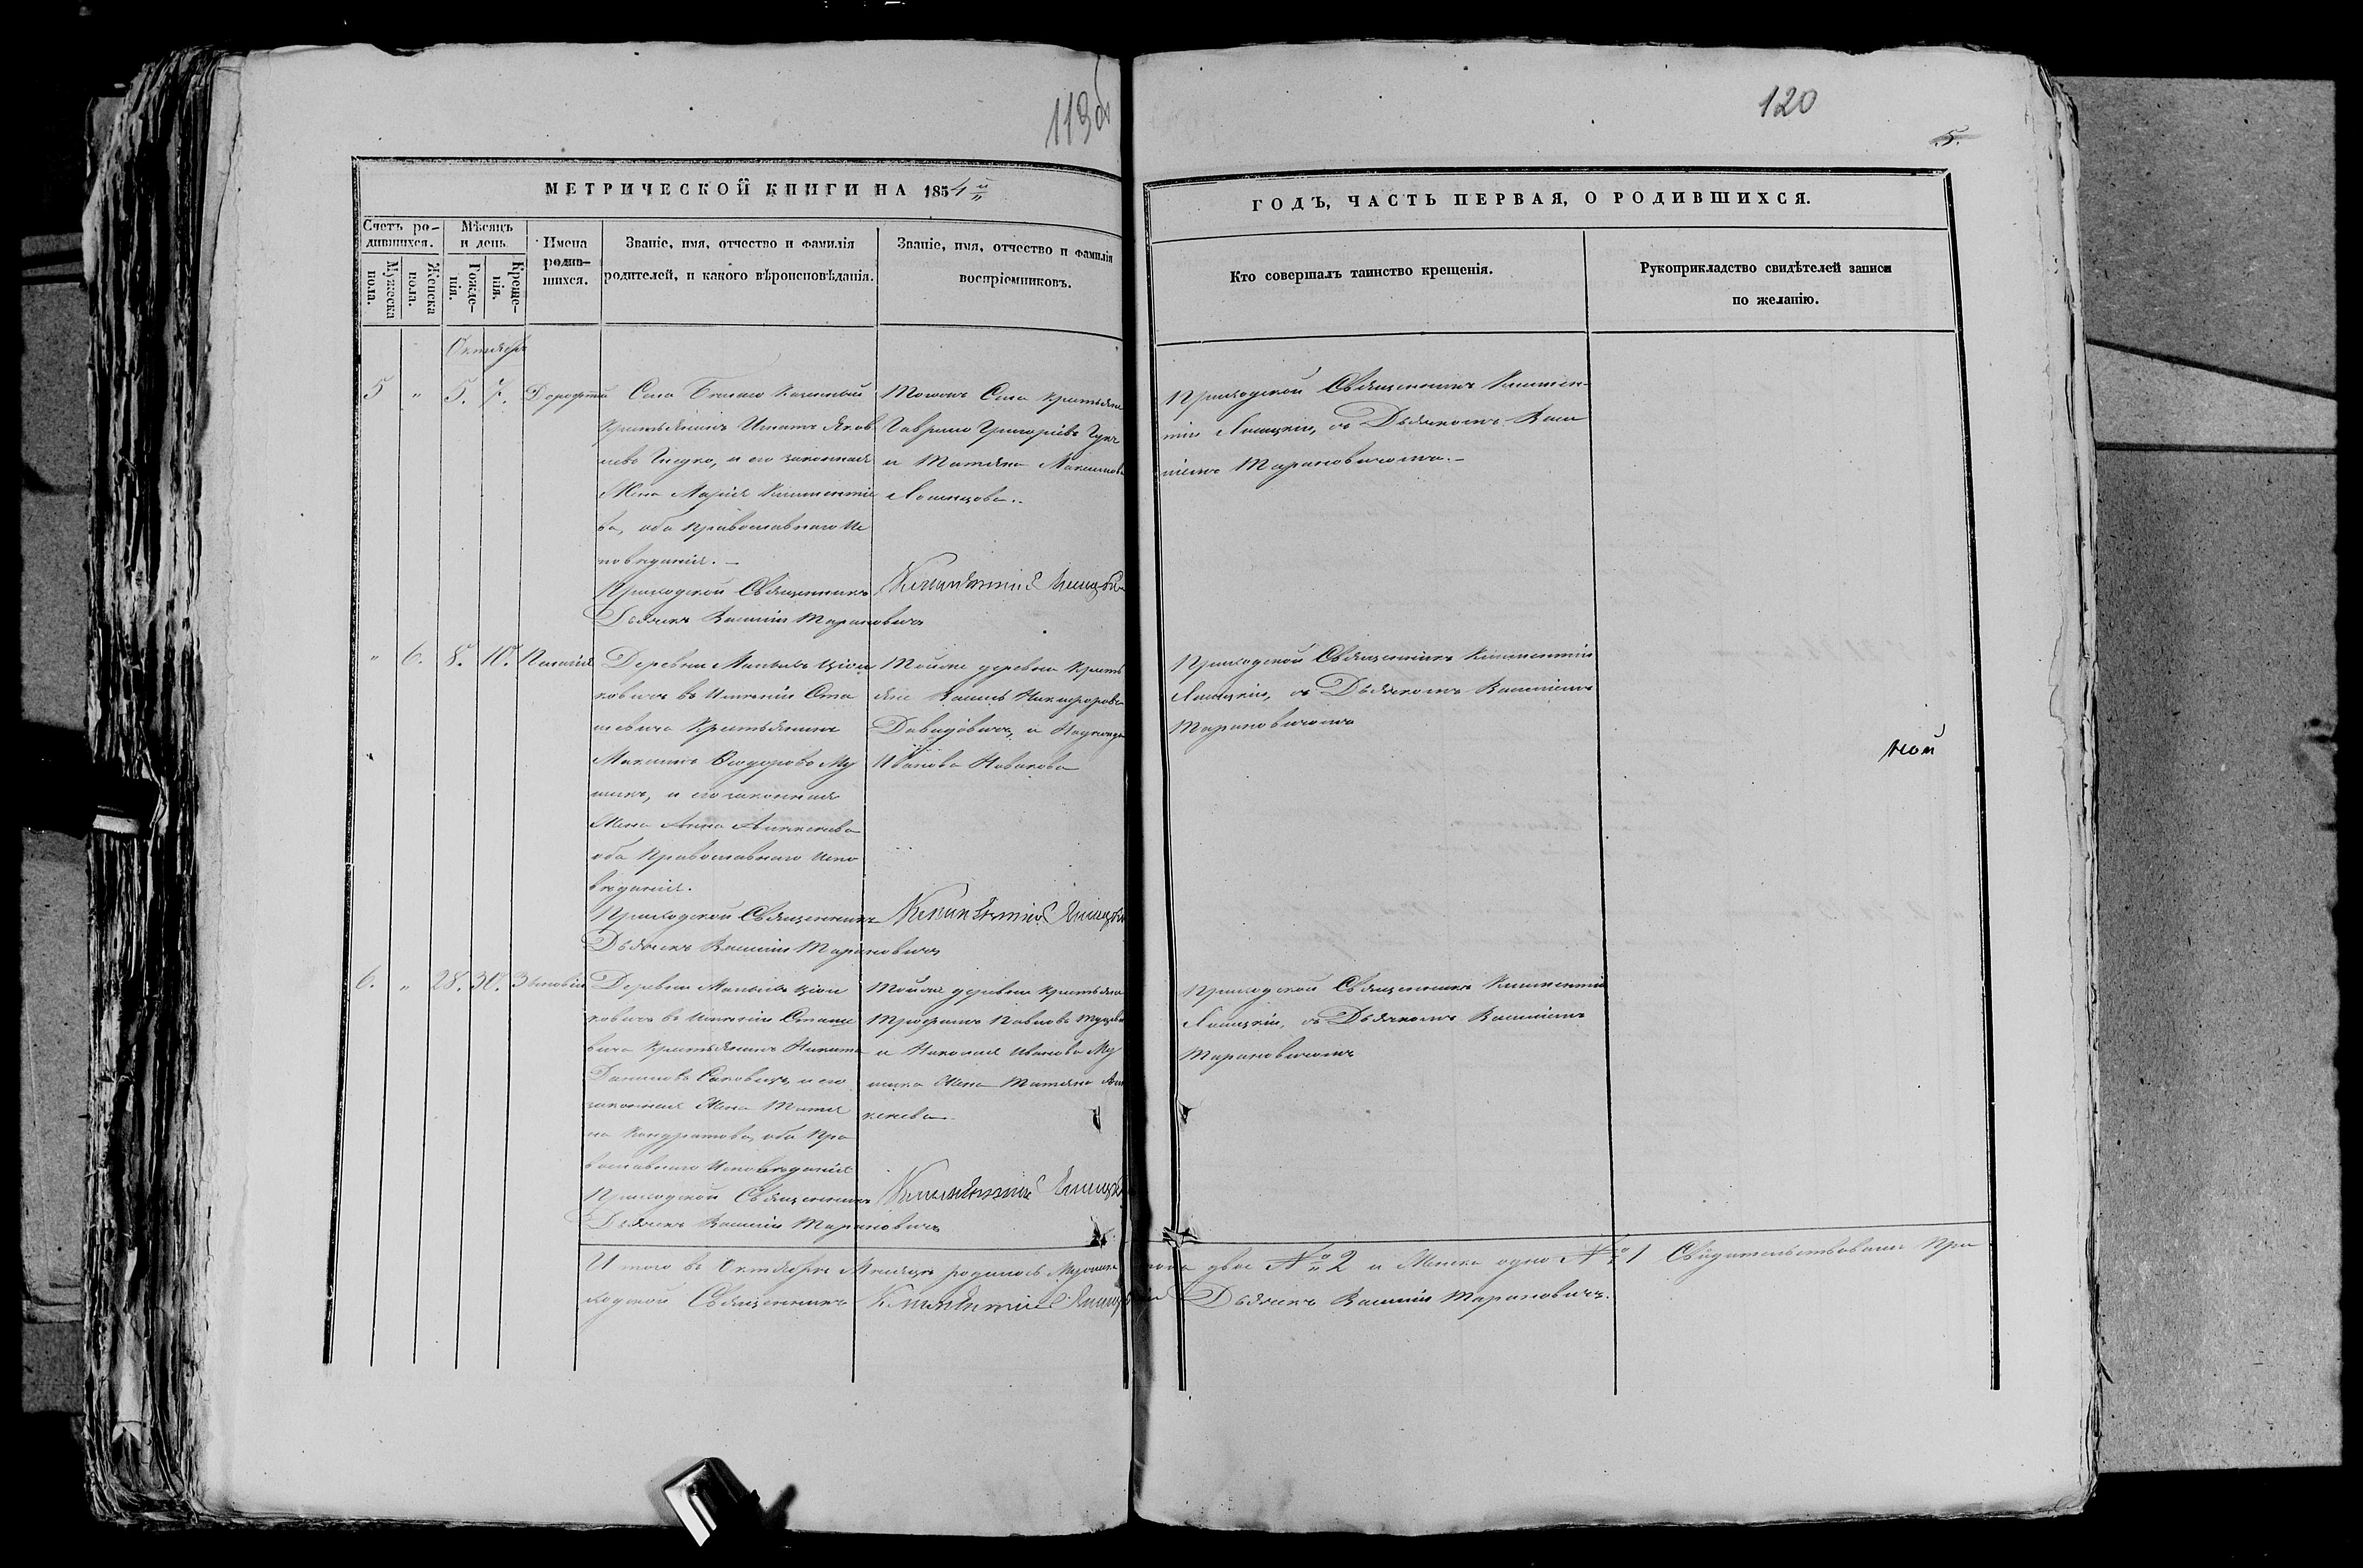 113об
120
5.
МЕТРИЧЕСКОЙ КНИГИ НА 1854й
ГОДЪ, ЧАСТЬ ПЕРВАЯ, О РОДИВШИХСЯ.
Счетъ ро-
дившихся.
Мужеска
пола.
Женска
пола.
Мѣсяцъ
и день
Рожде-
нія.
Креще-
нія.
Имена
родив-
шихся.
Званіе, имя, отчество и фамилія
родителей, и какого вѣроисповѣданія.
Званіе, имя, отчество и фамилія
воспріемниковъ.
Кто совершалъ таинство крещенія.
Рукоприкладство свидѣтелей записи
по желанію.
Октябрь
5 " 5. 7. Дорофтей
Села Казенный
Крестьянинъ Игнатъ Яков
левъ и его законная
Жена Марія Климентіе
ва, оба Православнаго Ис
повѣданія. —
Приходской Священникъ Климентій Лисицкій
Дьячекъ Василій Тарановичъ
Тогожъ Села Крестьяне
Гаврило Григорьевъ
и Татяна Максимова
Приходской Священникъ Климен-
тій Лисицкій, съ Дьячкомъ Васи
ліемъ Тарановичомъ. —
" 6. 8. 10. Пелагія
Деревни
ковичъ въ Имѣніи Ста
шевича Крестьянинъ
Максимъ Ѳеодоровъ Му
шикъ, и его законная
Жена Анна Алексѣева
оба Православнаго Испо
вѣданія.
Приходской Священникъ Климентій Лисицкій
Дьячекъ Василій Тарановичъ
Тойже деревни Кресть
яне Василь Никифоровъ
Давидовичъ, и Надежда
Иванова Новикова
Приходской Священникъ Климентій
Лисицкій, съ Дьячкомъ Василіемъ
Тарановичомъ
ной
6. " 28. 30. Зѣновій
Деревни
ковичъ въ Имѣніи Сташе
вича Крестьянинъ Никита
Даниловъ Саковичъ, и его
законная Жена Татья
на Кондратова, оба Пра
вославнаго Исповѣданія
Приходской Священникъ Климентій Лисицкій
Дьячекъ Василій Тарановичъ
Тойже деревни Крестьяне
Трофимъ Павловъ
и Николая Иванова Му
шика Жена Татяна Але
ксѣева
Приходской Священникъ Климентій
Лисицкій, съ Дьячкомъ Василіемъ
Тарановичомъ
Итого въ Октябрѣ Мѣсяцѣ родилось Мужеска пола двое № 2 и Женска одно № 1 Свидѣтельствовали При
ходской Священникъ Климентій Лисицкій Дьячекъ Василій Тарановичъ.